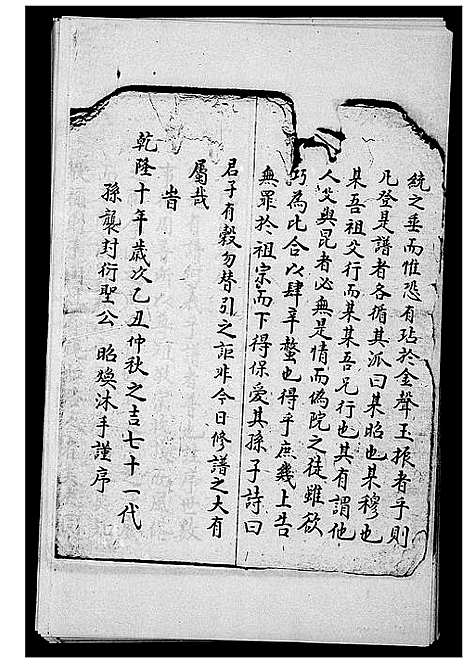 統之垂而惟恐有玷於金聲玉振者乎則
凡登是譜者各循其派曰某昭也某穆也
某吾祖父行而某某吾兄行也其有謂他
人父與昆者必無是情而偽院之徒雖欲
巧為比合以肆平螯也得乎庶幾上告
無罪於祖宗而下得保愛其孫子詩曰
君子有穀勿替引之詎非今日修譜之大有
屬哉
旹
乾隆十年歲次乙丑仲秋之吉七十一代
孫襲封衍聖公 昭煥沐手謹序